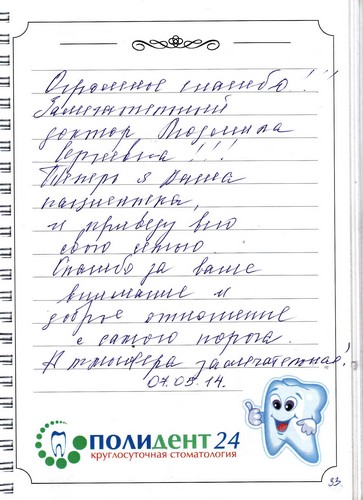 Огромное спасибо!!!
Замечательный
доктор Людмила
Сергеевна!!!
Теперь я Ваша
пациентка,
и приведу всю
свою семью.
Спасибо за ваше
внимание и
доброе отношение
с самого порога.
Атмосфера замечательная!
07.05.14.
ПОЛИДЕНТ 24
круглосуточная стоматология
53